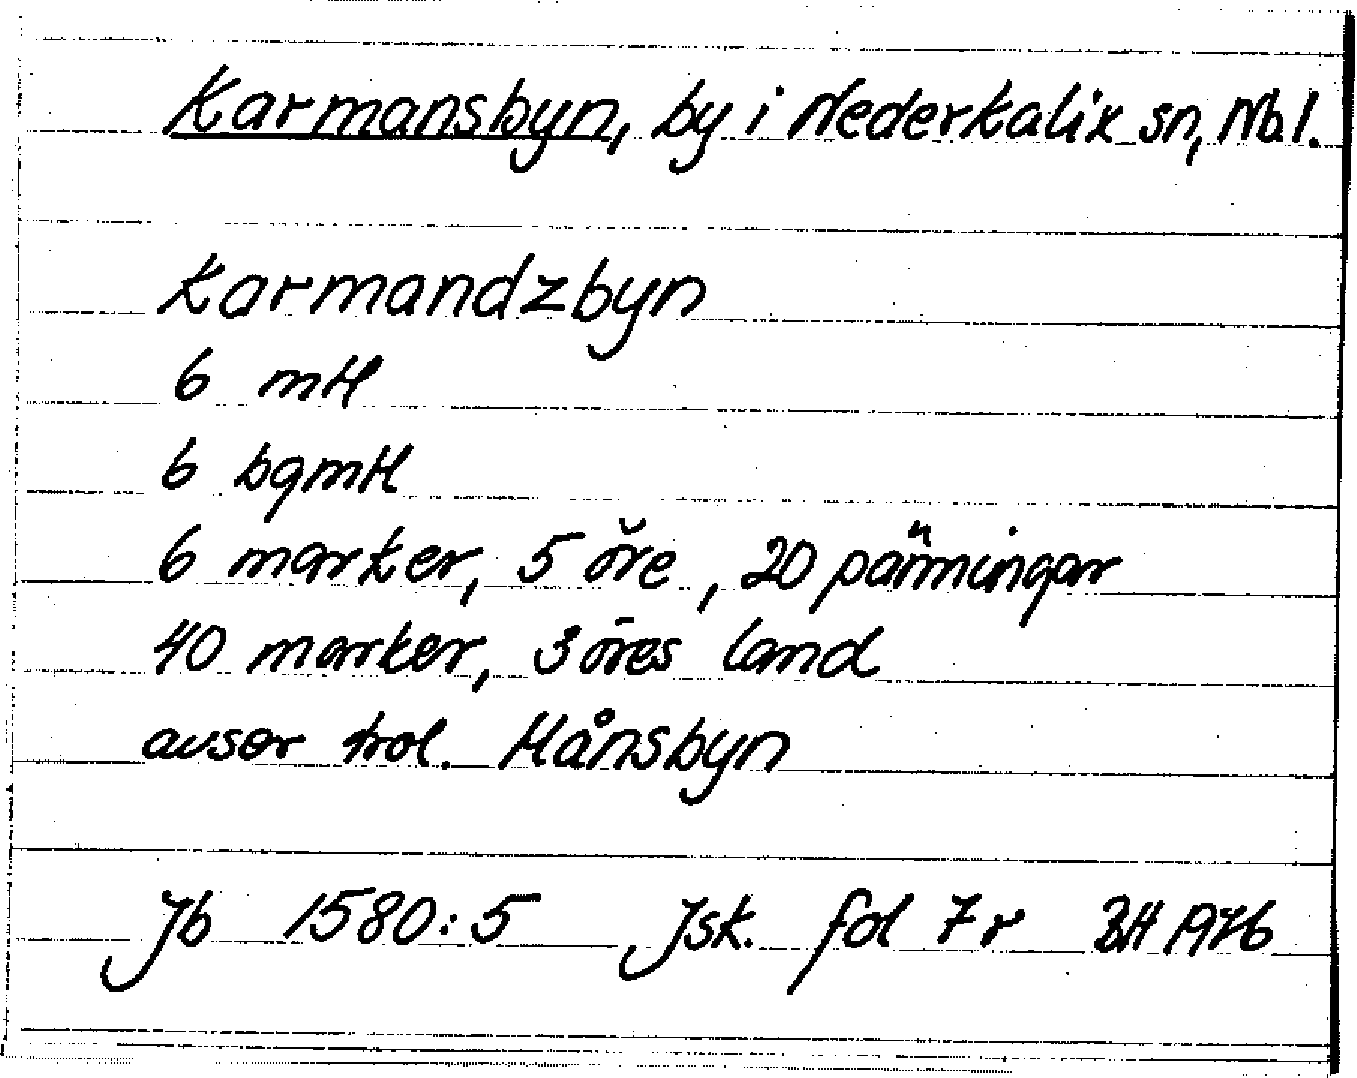 Karmansbyn, by i Nederkalix sn, Nb.l.
Karmandzbyn
6 mH
6 bgmH
6 marker, 5 öre, 20 pänningar
40 marker, 3 öres land
avser trol. Månsbyn
Jb 1580:5 Jsk. fol 7r BH 1976